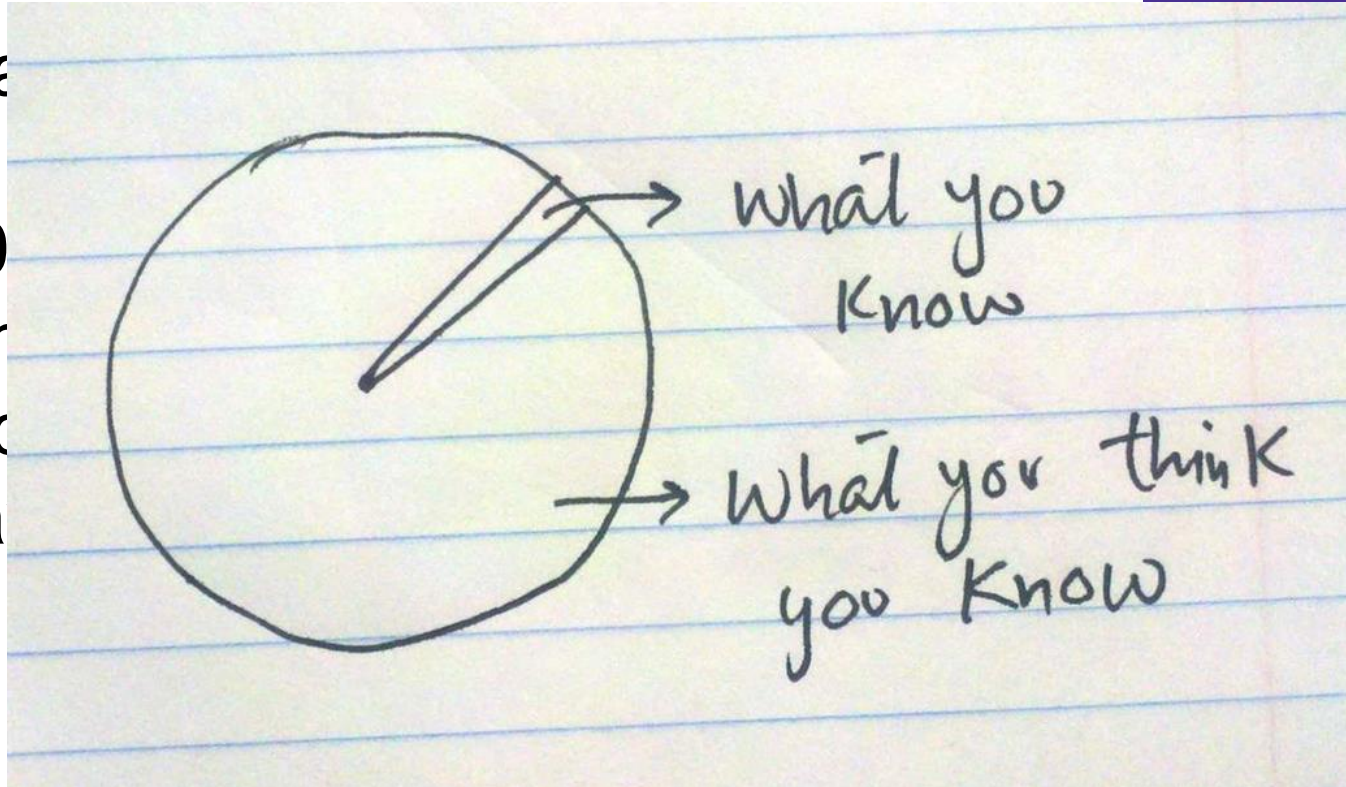 What you
Know
What you think
you Know